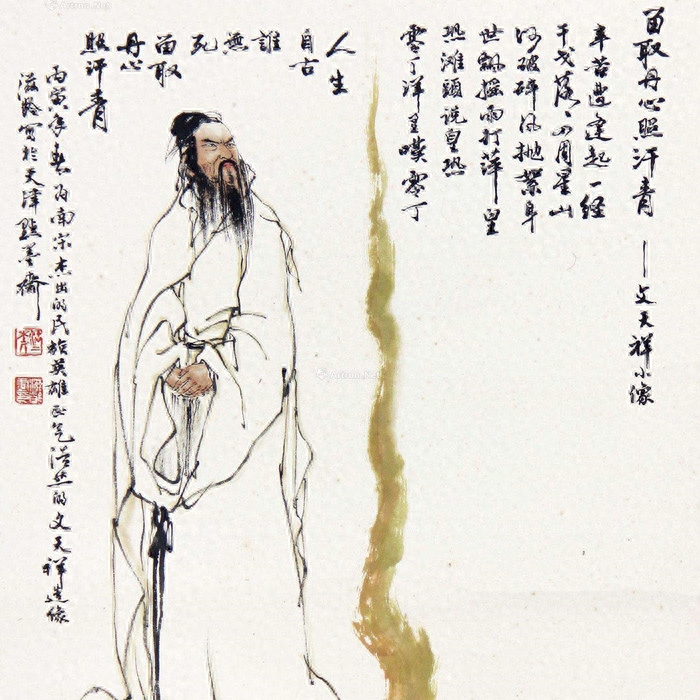 留取丹心照汗青——文天祥小像
辛苦遭逢起一经
干戈落落四周星山
河破碎风抛絮身
世飘摇雨打萍皇
恐滩頭说皇恐
零丁洋里嘆零丁
人生
自古
誰
無
死
留取
丹心
照汗青
丙寅年春为南宋杰出的民族英雄正气浩然的文天祥造像
滋龄写於天津點墨齋